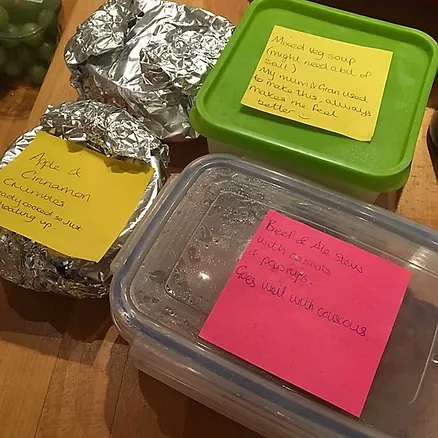 Mixed veg soup
(might need a bit of
salt)
My mum & Gran used
to make this, always
makes me feel
better :)
Apple &
Cinnamon
Crumbles
ready cooked so just
heating up.
Beef & Ale Stew
with carrots
& parsnips.
Goes well with couscous.